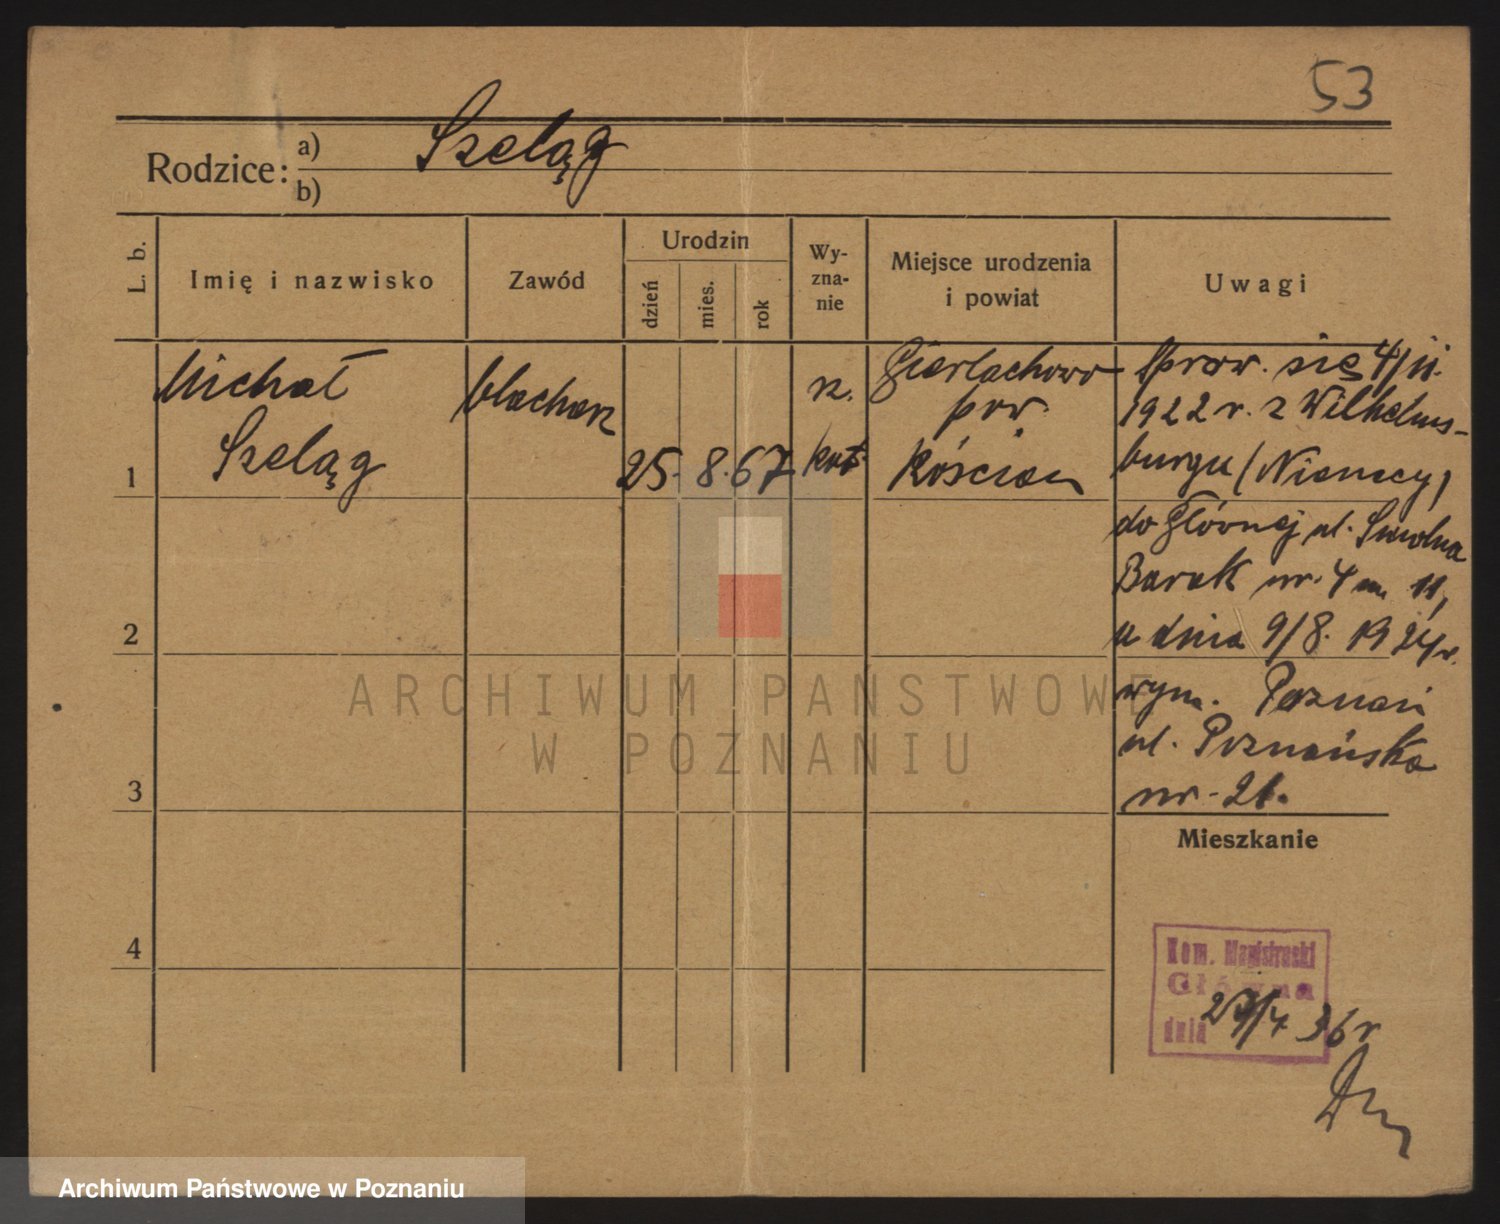 53
Rodzice: a) Szeląg
b)
L. b.
Imię i nazwisko
Zawód
Urodzin
dzień
mies.
rok
Wy-
zna-
nie
Miejsce urodzenia
i powiat
Uwagi
1
Michał
Szeląg
blacharz
25. 8. 67
rz.
kat.
Gierłachowo
pow.
Kościan
sprow. się 4/11.
1922 r. z Wilhelms-
burgu (Niemcy)
do Głównej ul. Smolna
Barak nr. 4 m. 11,
a dnia 9/8. 1924 r.
wym. Poznań
ul. Poznańska
nr. 21.
2
3
4
Mieszkanie
Kom. Magistracki
Główna
dnia 27/4 36 r
ARCHIWUM PAŃSTWOWE
W POZNANIU
Archiwum Państwowe w Poznaniu